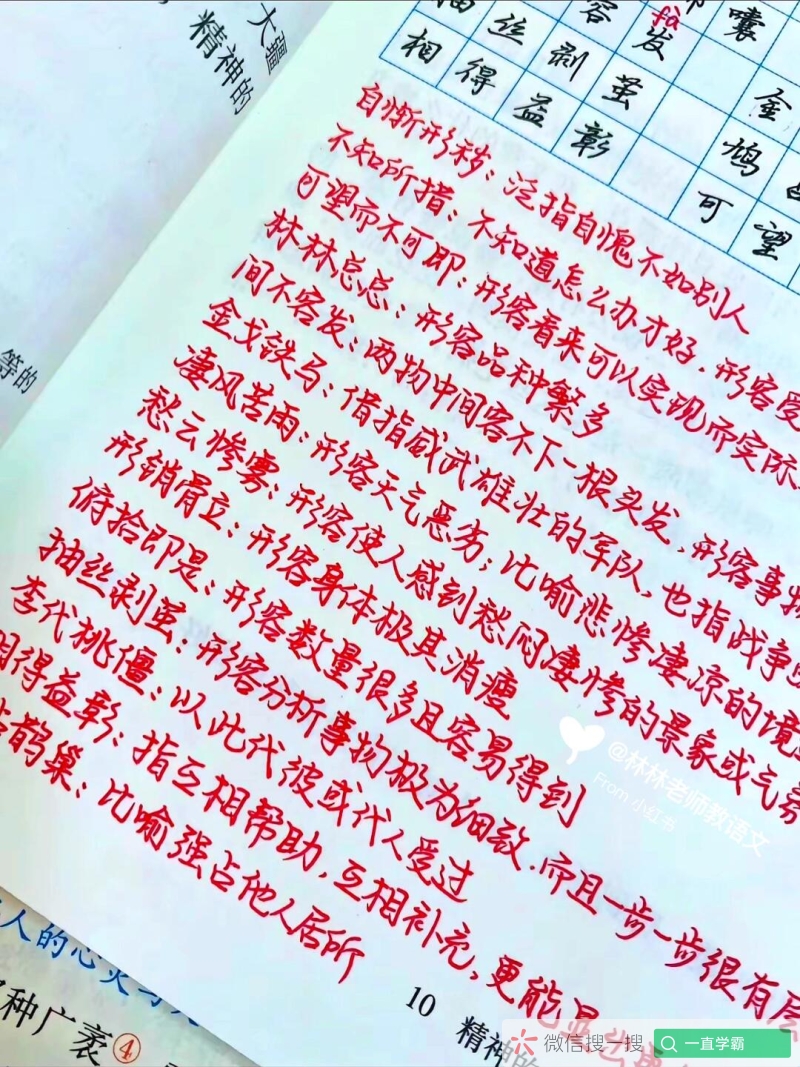 大疆
精神的
等的
丝 容 发 囊
fà
相 得 剥 茧 金
益 彰 鸠
可 望
自惭形秽：泛指自愧不如别人
不知所措：不知道怎么办才好，形容受
可望而不可即：形容看来可以实现而实际
林林总总：形容品种繁多
间不容发：两物中间容不下一根头发，形容事物
金戈铁马：借指威武雄壮的军队，也指战事
凄风苦雨：形容天气恶劣；比喻悲惨凄凉的境
愁云惨雾：形容使人感到愁闷凄惨的景象或气氛
形销骨立：形容身体极其消瘦
俯拾即是：形容数量很多且容易得到
抽丝剥茧：形容分析事物极为细致，而且一步一步很有层
李代桃僵：以此代彼或代人受过
相得益彰：指互相帮助，互相补充，更能显
鹊巢：比喻强占他人居所
@林林老师教语文
From 小红书
人的心灵
种广袤④
10 精神的
微信搜一搜 一直学霸